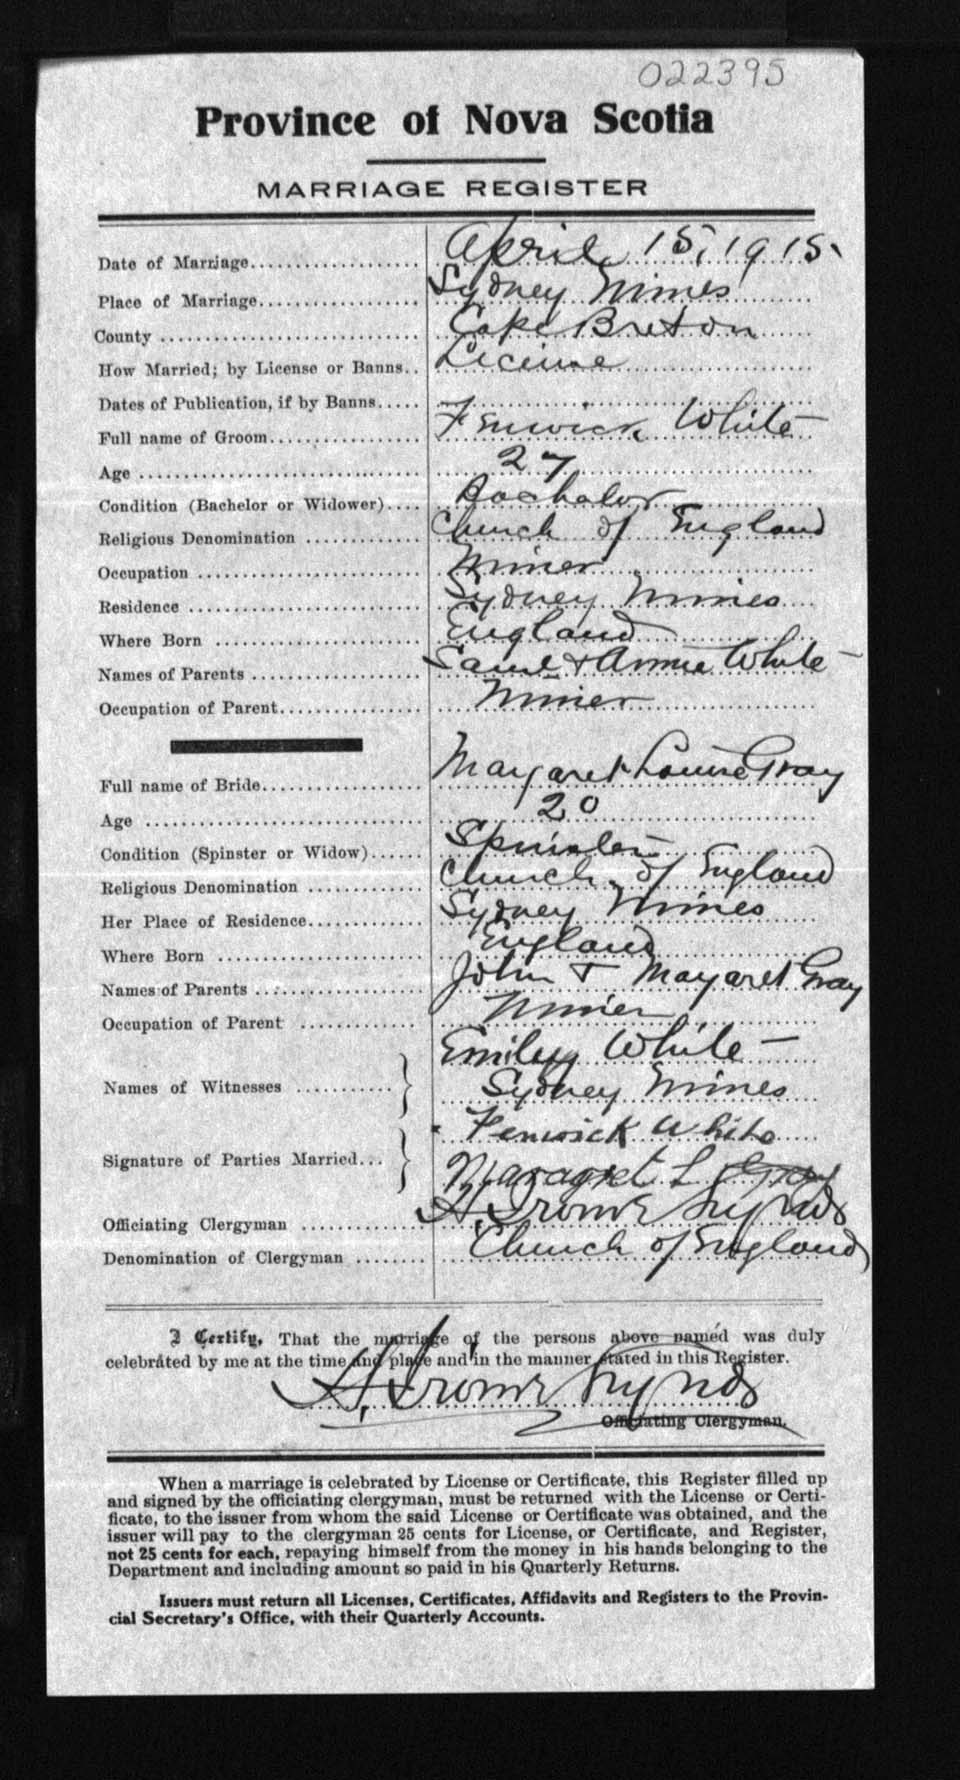 022395
Province of Nova Scotia
MARRIAGE REGISTER
Date of Marriage.................... April 15, 1915.
Place of Marriage................... Sydney Mines
County .............................. Cape Breton
How Married; by License or Banns.. License
Dates of Publication, if by Banns.....
Full name of Groom.................. Fenwick White
Age ................................. 27
Condition (Bachelor or Widower).... Bachelor
Religious Denomination ............. Church of England
Occupation .......................... Miner
Residence ........................... Sydney Mines
Where Born ......................... England
Names of Parents .................... Saml & Annie White
Occupation of Parent................. Miner
Full name of Bride................... Margaret Louise Gray
Age ................................. 20
Condition (Spinster or Widow)...... Spinster
Religious Denomination ............. Church of England
Her Place of Residence............. Sydney Mines
Where Born ......................... England
Names of Parents .................... John & Margaret Gray
Occupation of Parent ............... Miner
Emily White
Names of Witnesses ........... } Sydney Mines
Fenwick White
Signature of Parties Married... } Maragret L Gray
Officiating Clergyman .............. H.
Denomination of Clergyman ........ Church of England
I Certify, That the marriage of the persons above named was duly
celebrated by me at the time and place and in the manner stated in this Register.
H.
Officiating Clergyman.
When a marriage is celebrated by License or Certificate, this Register filled up
and signed by the officiating clergyman, must be returned with the License or Certi-
ficate, to the issuer from whom the said License or Certificate was obtained, and the
issuer will pay to the clergyman 25 cents for License, or Certificate, and Register,
not 25 cents for each, repaying himself from the money in his hands belonging to the
Department and including amount so paid in his Quarterly Returns.
Issuers must return all Licenses, Certificates, Affidavits and Registers to the Provin-
cial Secretary's Office, with their Quarterly Accounts.